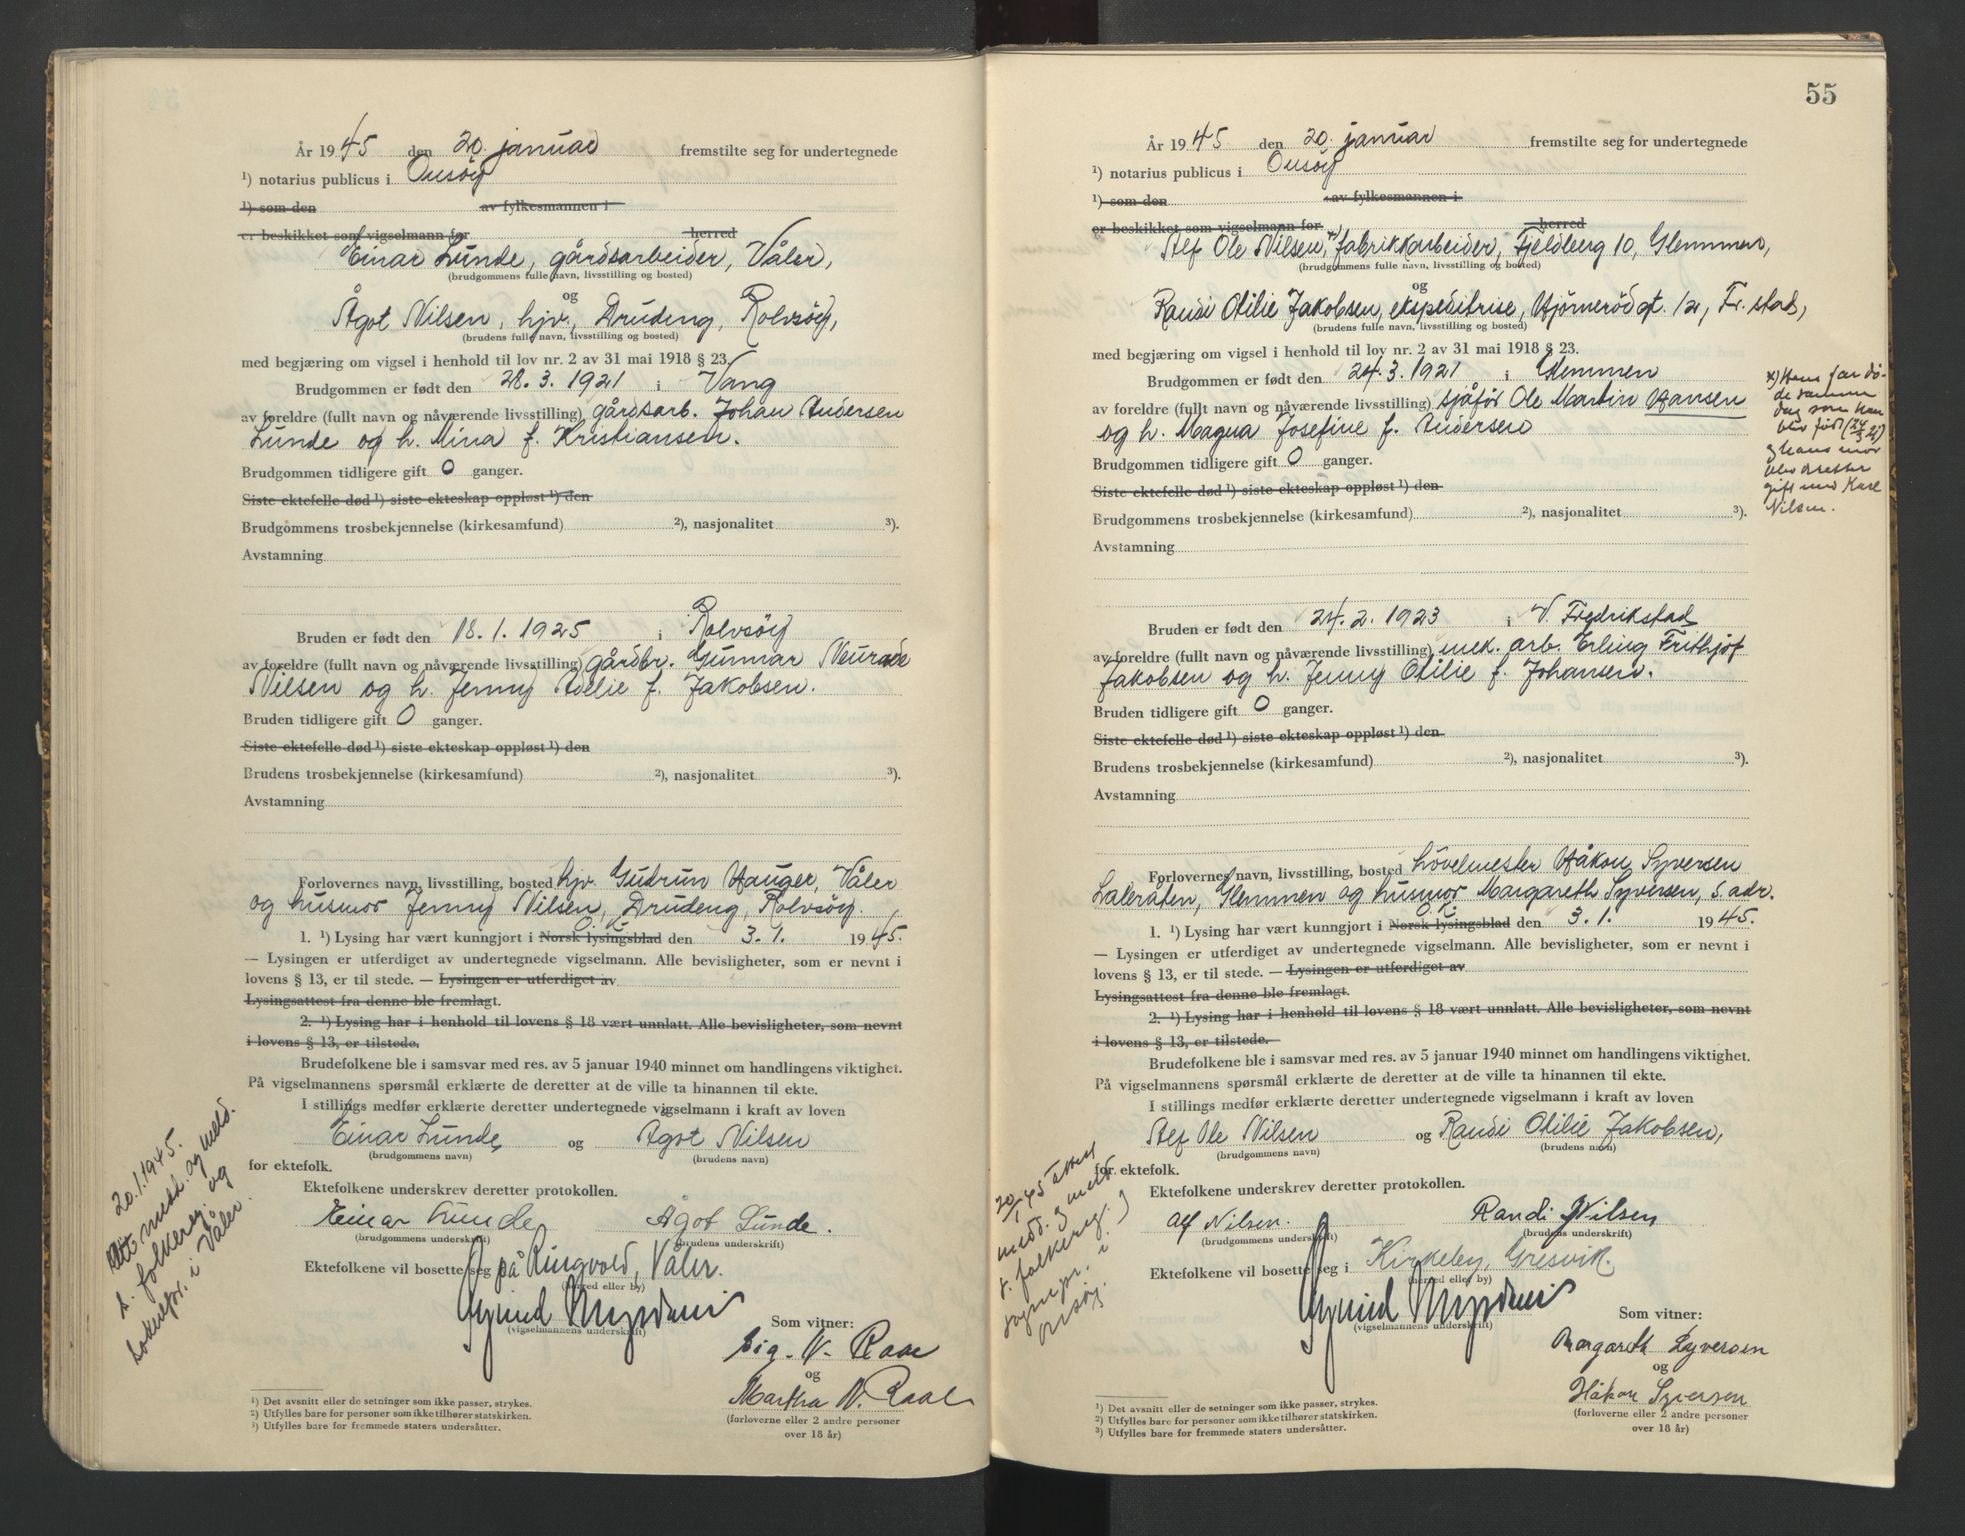 År 1945 den 20. januar fremstilte seg for undertegnede
¹) notarius publicus i Onsöy
¹) som den av fylkesmannen i
er beskikket som vigselmann for herred
Einar Lunde, gårdsarbeider, Våler,
(brudgommens fulle navn, livsstilling og bosted)
og
Ågot Nilsen, hjv., Drudeng, Rolvsöy,
(brudens fulle navn, livsstilling og bosted)
med begjæring om vigsel i henhold til lov nr. 2 av 31 mai 1918 § 23.
Brudgommen er født den 28. 3. 1921 i Vang
av foreldre (fullt navn og nåværende livsstilling) gårdsarb. Johan Andersen
Lunde og h. Mina f. Kristiansen.
Brudgommen tidligere gift 0 ganger.
Siste ektefelle død ¹) siste ekteskap oppløst ¹) den
Brudgommens trosbekjennelse (kirkesamfund) ²), nasjonalitet ³).
Avstamning
Bruden er født den 18. 1. 1925 i Rolvsöy
av foreldre (fullt navn og nåværende livsstilling) gårdbr. Gunnar
Nilsen og h. Jenny Adelie f. Jakobsen.
Bruden tidligere gift 0 ganger.
Siste ektefelle død ¹) siste ekteskap oppløst ¹) den
Brudens trosbekjennelse (kirkesamfund) ²), nasjonalitet ³).
Avstamning
Forlovernes navn, livsstilling, bosted hjv. Gudrun Hauger, Våler
og husmor Jenny Nilsen, Drudeng, Rolvsöy.
O. K.
1. ¹) Lysing har vært kunngjort i Norsk lysingsblad den 3. 1. 1945.
— Lysingen er utferdiget av undertegnede vigselmann. Alle bevisligheter, som er nevnt i
lovens § 13, er til stede. — Lysingen er utferdiget av
Lysingsattest fra denne ble fremlagt.
2. ¹) Lysing har i henhold til lovens § 18 vært unnlatt. Alle bevisligheter, som nevnt
i lovens § 13, er tilstede.
Brudefolkene ble i samsvar med res. av 5 januar 1940 minnet om handlingens viktighet.
På vigselmannens spørsmål erklærte de deretter at de ville ta hinannen til ekte.
I stillings medfør erklærte deretter undertegnede vigselmann i kraft av loven
Einar Lunde og Ågot Nilsen
(brudgommens navn) (brudens navn)
for ektefolk.
Ektefolkene underskrev deretter protokollen.
Einar Lunde Ågot Lunde.
(brudgommens underskrift) (brudens underskrift)
Ektefolkene vil bosette seg på Ringvold, Våler.
(herred eller by)
(vigselmannens underskrift)
Som vitner:
Sig. N. Raae
og
Martha N. Raae
(forloverne eller 2 andre personer
over 18 år)
¹) Det avsnitt eller de setninger som ikke passer, strykes.
²) Utfylles bare for personer som ikke tilhører statskirken.
³) Utfylles bare for fremmede staters undersåtter.
20.1.1945.
Att. medd. og meld.
t. folkereg. og
sokнepr. i Våler.
55
År 1945 den 20. januar fremstilte seg for undertegnede
¹) notarius publicus i Onsöy
¹) som den av fylkesmannen i
er beskikket som vigselmann for herred
Alf Ole Nilsen, x) fabrikkarbeider, Fjeldberg 10, Glemmen,
(brudgommens fulle navn, livsstilling og bosted)
og
Randi Otilie Jakobsen, ekspeditrise, Hjörnerödgt. 12, Fr.stad,
(brudens fulle navn, livsstilling og bosted)
med begjæring om vigsel i henhold til lov nr. 2 av 31 mai 1918 § 23.
Brudgommen er født den 24. 3. 1921 i Glemmen
av foreldre (fullt navn og nåværende livsstilling) sjåför Ole Martin Hansen
og h. Magna Josefine f. Andersen
Brudgommen tidligere gift 0 ganger.
Siste ektefelle død ¹) siste ekteskap oppløst ¹) den
Brudgommens trosbekjennelse (kirkesamfund) ²), nasjonalitet ³).
Avstamning
x) Hans far dö-
de samme
dag som han
blev födt (24/3 21)
og hans mor
blev dretter
gift med Karl
Nilsen.
Bruden er født den 24. 2. 1923 i V. Fredrikstad
av foreldre (fullt navn og nåværende livsstilling) mek. arb. Erling Frithjof
Jakobsen og h. Jenny Otilie f. Johansen.
Bruden tidligere gift 0 ganger.
Siste ektefelle død ¹) siste ekteskap oppløst ¹) den
Brudens trosbekjennelse (kirkesamfund) ²), nasjonalitet ³).
Avstamning
Forlovernes navn, livsstilling, bosted hövelmester Håkon Syversen
Laleråten, Glemmen og husmor Margareth Syversen, s. adr.
O. K.
1. ¹) Lysing har vært kunngjort i Norsk lysingsblad den 3. 1. 1945.
— Lysingen er utferdiget av undertegnede vigselmann. Alle bevisligheter, som er nevnt i
lovens § 13, er til stede. — Lysingen er utferdiget av
Lysingsattest fra denne ble fremlagt.
2. ¹) Lysing har i henhold til lovens § 18 vært unnlatt. Alle bevisligheter, som nevnt
i lovens § 13, er tilstede.
Brudefolkene ble i samsvar med res. av 5 januar 1940 minnet om handlingens viktighet.
På vigselmannens spørsmål erklærte de deretter at de ville ta hinannen til ekte.
I stillings medfør erklærte deretter undertegnede vigselmann i kraft av loven
Alf Ole Nilsen og Randi Otilie Jakobsen,
(brudgommens navn) (brudens navn)
for ektefolk.
Ektefolkene underskrev deretter protokollen.
Alf Nilsen. Randi Nilsen
(brudgommens underskrift) (brudens underskrift)
Ektefolkene vil bosette seg i Kirkeby, Gresvik.
(herred eller by)
(vigselmannens underskrift)
Som vitner:
Margareth Syversen
og
Håkon Syversen
(forloverne eller 2 andre personer
over 18 år)
¹) Det avsnitt eller de setninger som ikke passer, strykes.
²) Utfylles bare for personer som ikke tilhører statskirken.
³) Utfylles bare for fremmede staters undersåtter.
20/1 45 attest
medd. og meld.
t. folkereg.
sognepr. i
Onsöy.